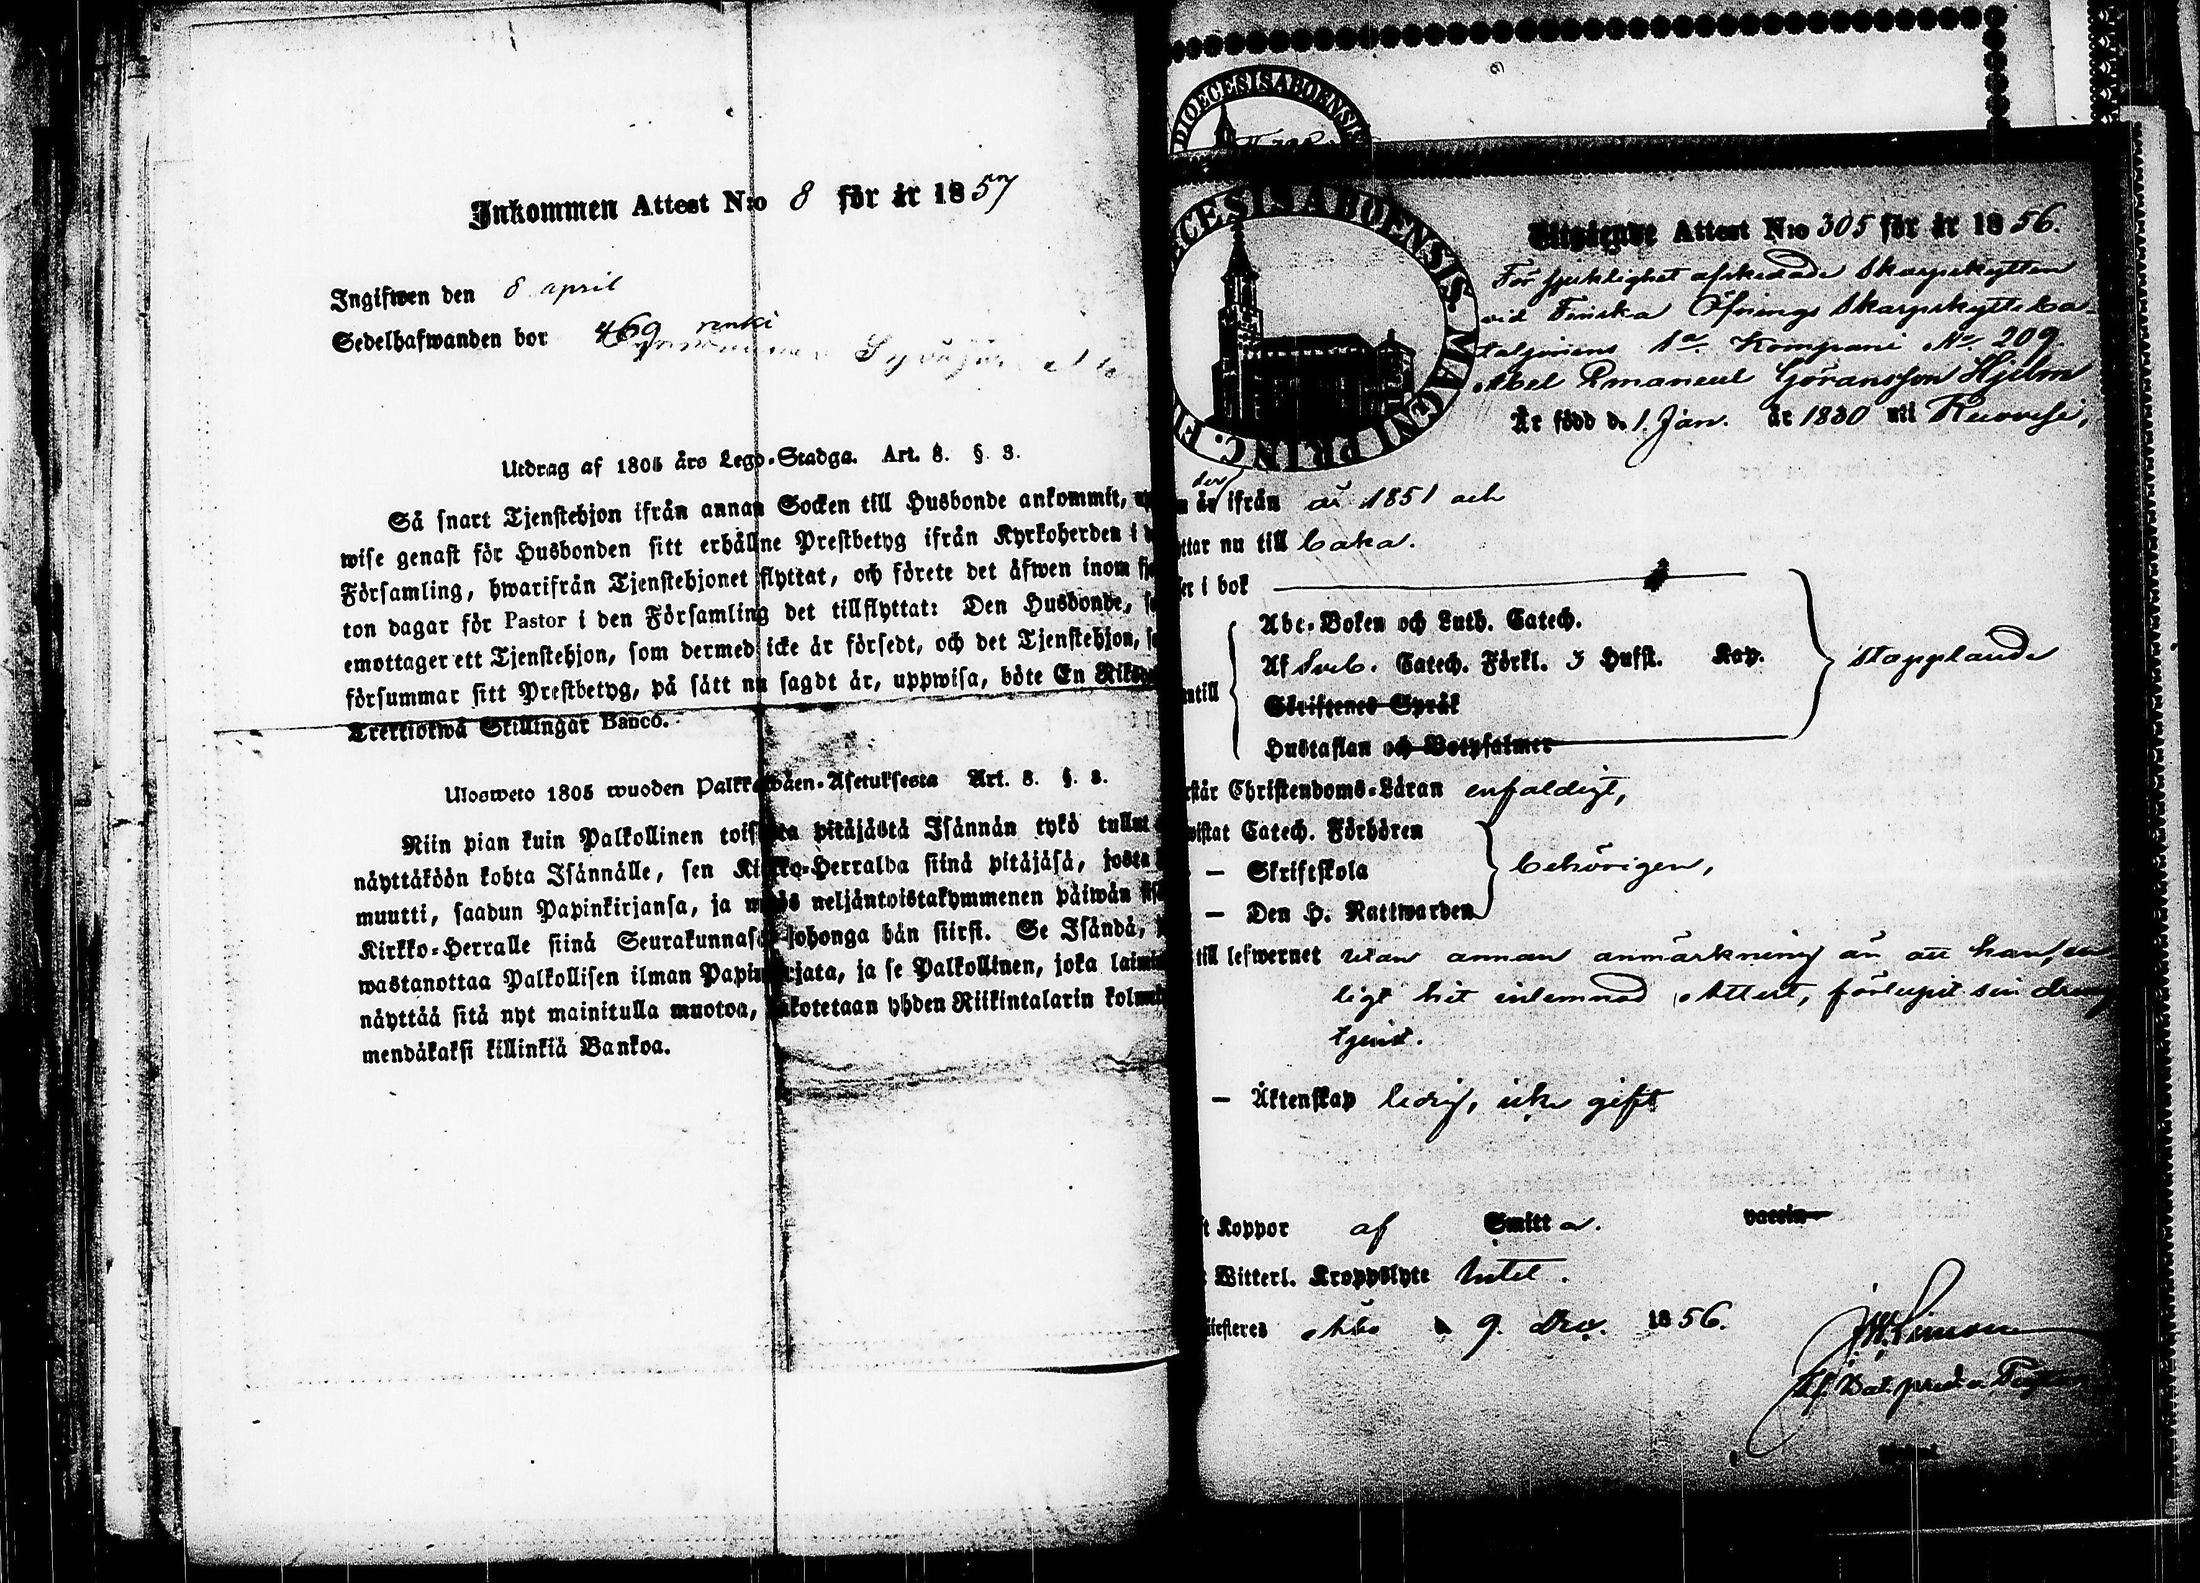 Inkommen Attest N:o 8 för år 1857
Ingifwen den 8 april
Sedelhafwanden bor 469 renki
Utdrag af 1805 års Lego-Stadga. Art. 8. §. 3.
Så snart Tjenstehjon ifrån annan Socken till Husbonde ankommit,
wise genast för Husbonden sitt erhållne Prestbetyg ifrån Kyrkoherden i
Församling, hwarifrån Tjenstehjonet flyttat, och förete det äfwen inom
ton dagar för Pastor i den Församling det tillflyttat: Den Husbonde,
emottager ett Tjenstehjon, som dermed icke är försedt, och det Tjenstehjon,
försummar sitt Prestbetyg, på sätt nu sagdt är, uppwisa, böte En
Trettiotwå Skillingar Banco.
Ulosweto 1805 wuoden Palkkawäen-Asetuksesta Art. 8. §. 3.
Niin pian kuin Palkollinen toisesta pitäjästä Isännän tykö tullut
näyttäköön kohta Isännälle, sen Kirkko-Herralda siinä pitäjäsä, josta
muutti, saadun Papinkirjansa, ja myös neljäntoistakymmenen päiwän
Kirkko-Herralle siinä Seurakunnasa johonga hän siirsi. Se Isändä,
wastanottaa Palkollisen ilman Papinkirjata, ja se Palkollinen, joka
näyttää sitä nyt mainitulla muotoa, sakotetaan yhden Riikintalarin
mendäkaksi killinkiä Bankoa.
DIOECESIS ABOENSIS
CESIS ABOENSIS MAGNI PRINC. F
Attest N:o 305 för år 1856.
För sjuklighet afskedade Skarpskytten
vid Finska Öfnings Skarpskytte ba-
taljonens 1a Kompani No. 209
Abel Emanuel Göransson Hjelm
Är född d. 1 Jan. år 1830 uti Ruovesi,
der ifrån år 1851 och
ttar nu till baka.
er i bok
Abc-Boken och Luth. Catech.
Af Sveb. Catech. Förkl. 3 Hufst. Kap. stapplande
antill
Skriftenes Språk
Hustaflan och Botpsalmer
rstår Christendoms-Läran enfaldigt,
wistat Catech. Förhören
— Skriftskola behörigen,
— Den H. Nattwarden
till lefwernet utan annan anmärkning än att han,
ligt hit inlemnad Attest, förlupit sin
tjenst.
— Äktenskap ledig, icke gift
t Koppor af Smitta. vaccin
Witterl. Kroppslyte Intet.
Åbo d 9. Dec. 1856.